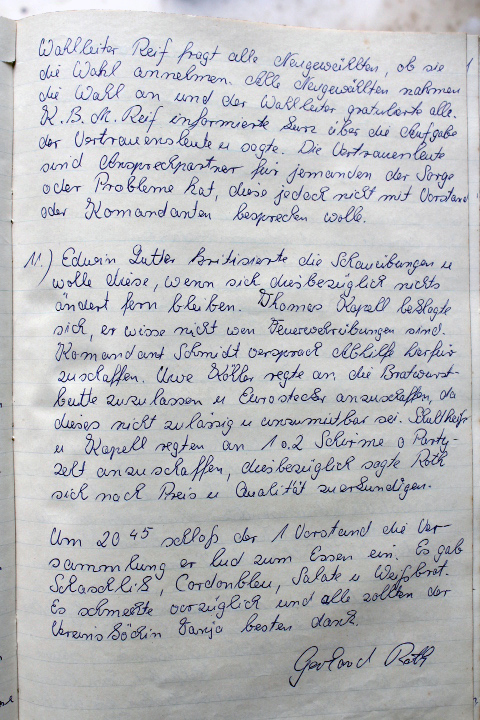 Wahlleiter Reif fragt alle Neugewählten, ob sie
die Wahl annehmen. Alle Neugewählten nahmen
die Wahl an und der Wahlleiter gratulierte alle.
K.B.M. Reif informierte kurz über die Aufgabe
der Vertrauensleute u sagte. Die Vertrauensleute
sind Ansprechpartner für jemanden der Sorge
oder Probleme hat, diese jedoch nicht mit Vorstand
oder Komandanten besprechen wolle.
11.) Edwin kritisierte die u
wolle diese, wenn sich diesbezüglich nichts
ändert fern bleiben. Thomas Kapell beklagte
sich, er wisse nicht wen Feuerwehrübungen sind.
Komandant Schmidt versprach Abhilfe hierfür
zuschaffen. Uwe Köller regte an die Bratwurst-
butte zuzulassen u Eurostecker anzuschaffen, da
dieses nicht zulässig u unzumutbar sei. Schultheiß
u Kapell regten an 1 o. 2 Schirme o Party-
zelt anzuschaffen, diesbezüglich sagte Roth
sich nach Preis u Qualität zuerkundigen.
Um 20 45 schloß der 1 Vorstand die Ver-
sammlung er lud zum Essen ein. Es gab
Schaschlik, Cordonbleu, Salate u Weißbrot.
Es schmeckte vorzüglich und alle zollten der
Vereinsköchin Tanja besten dank.
Gerhard Roth